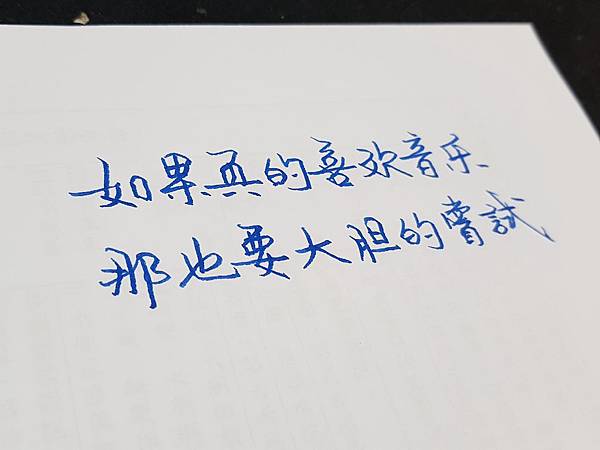 如果真的喜欢音乐
那也要大胆的嘗試